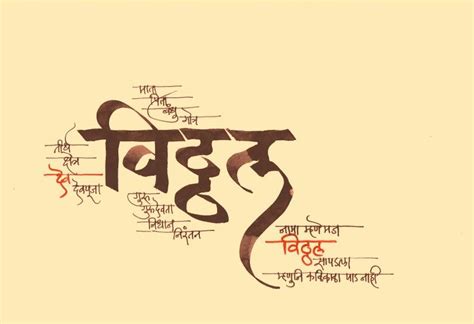 माता
पिता
बंधु
गोत्र
तीर्थ
क्षेत्र
देव
देवपूजा
विठ्ठल
गुरु
गुरुदेवता
निधान
निरंतर
नामा म्हणे मज
विठ्ठल
सापडला
म्हणुनि कळिकाळा पाड नाही